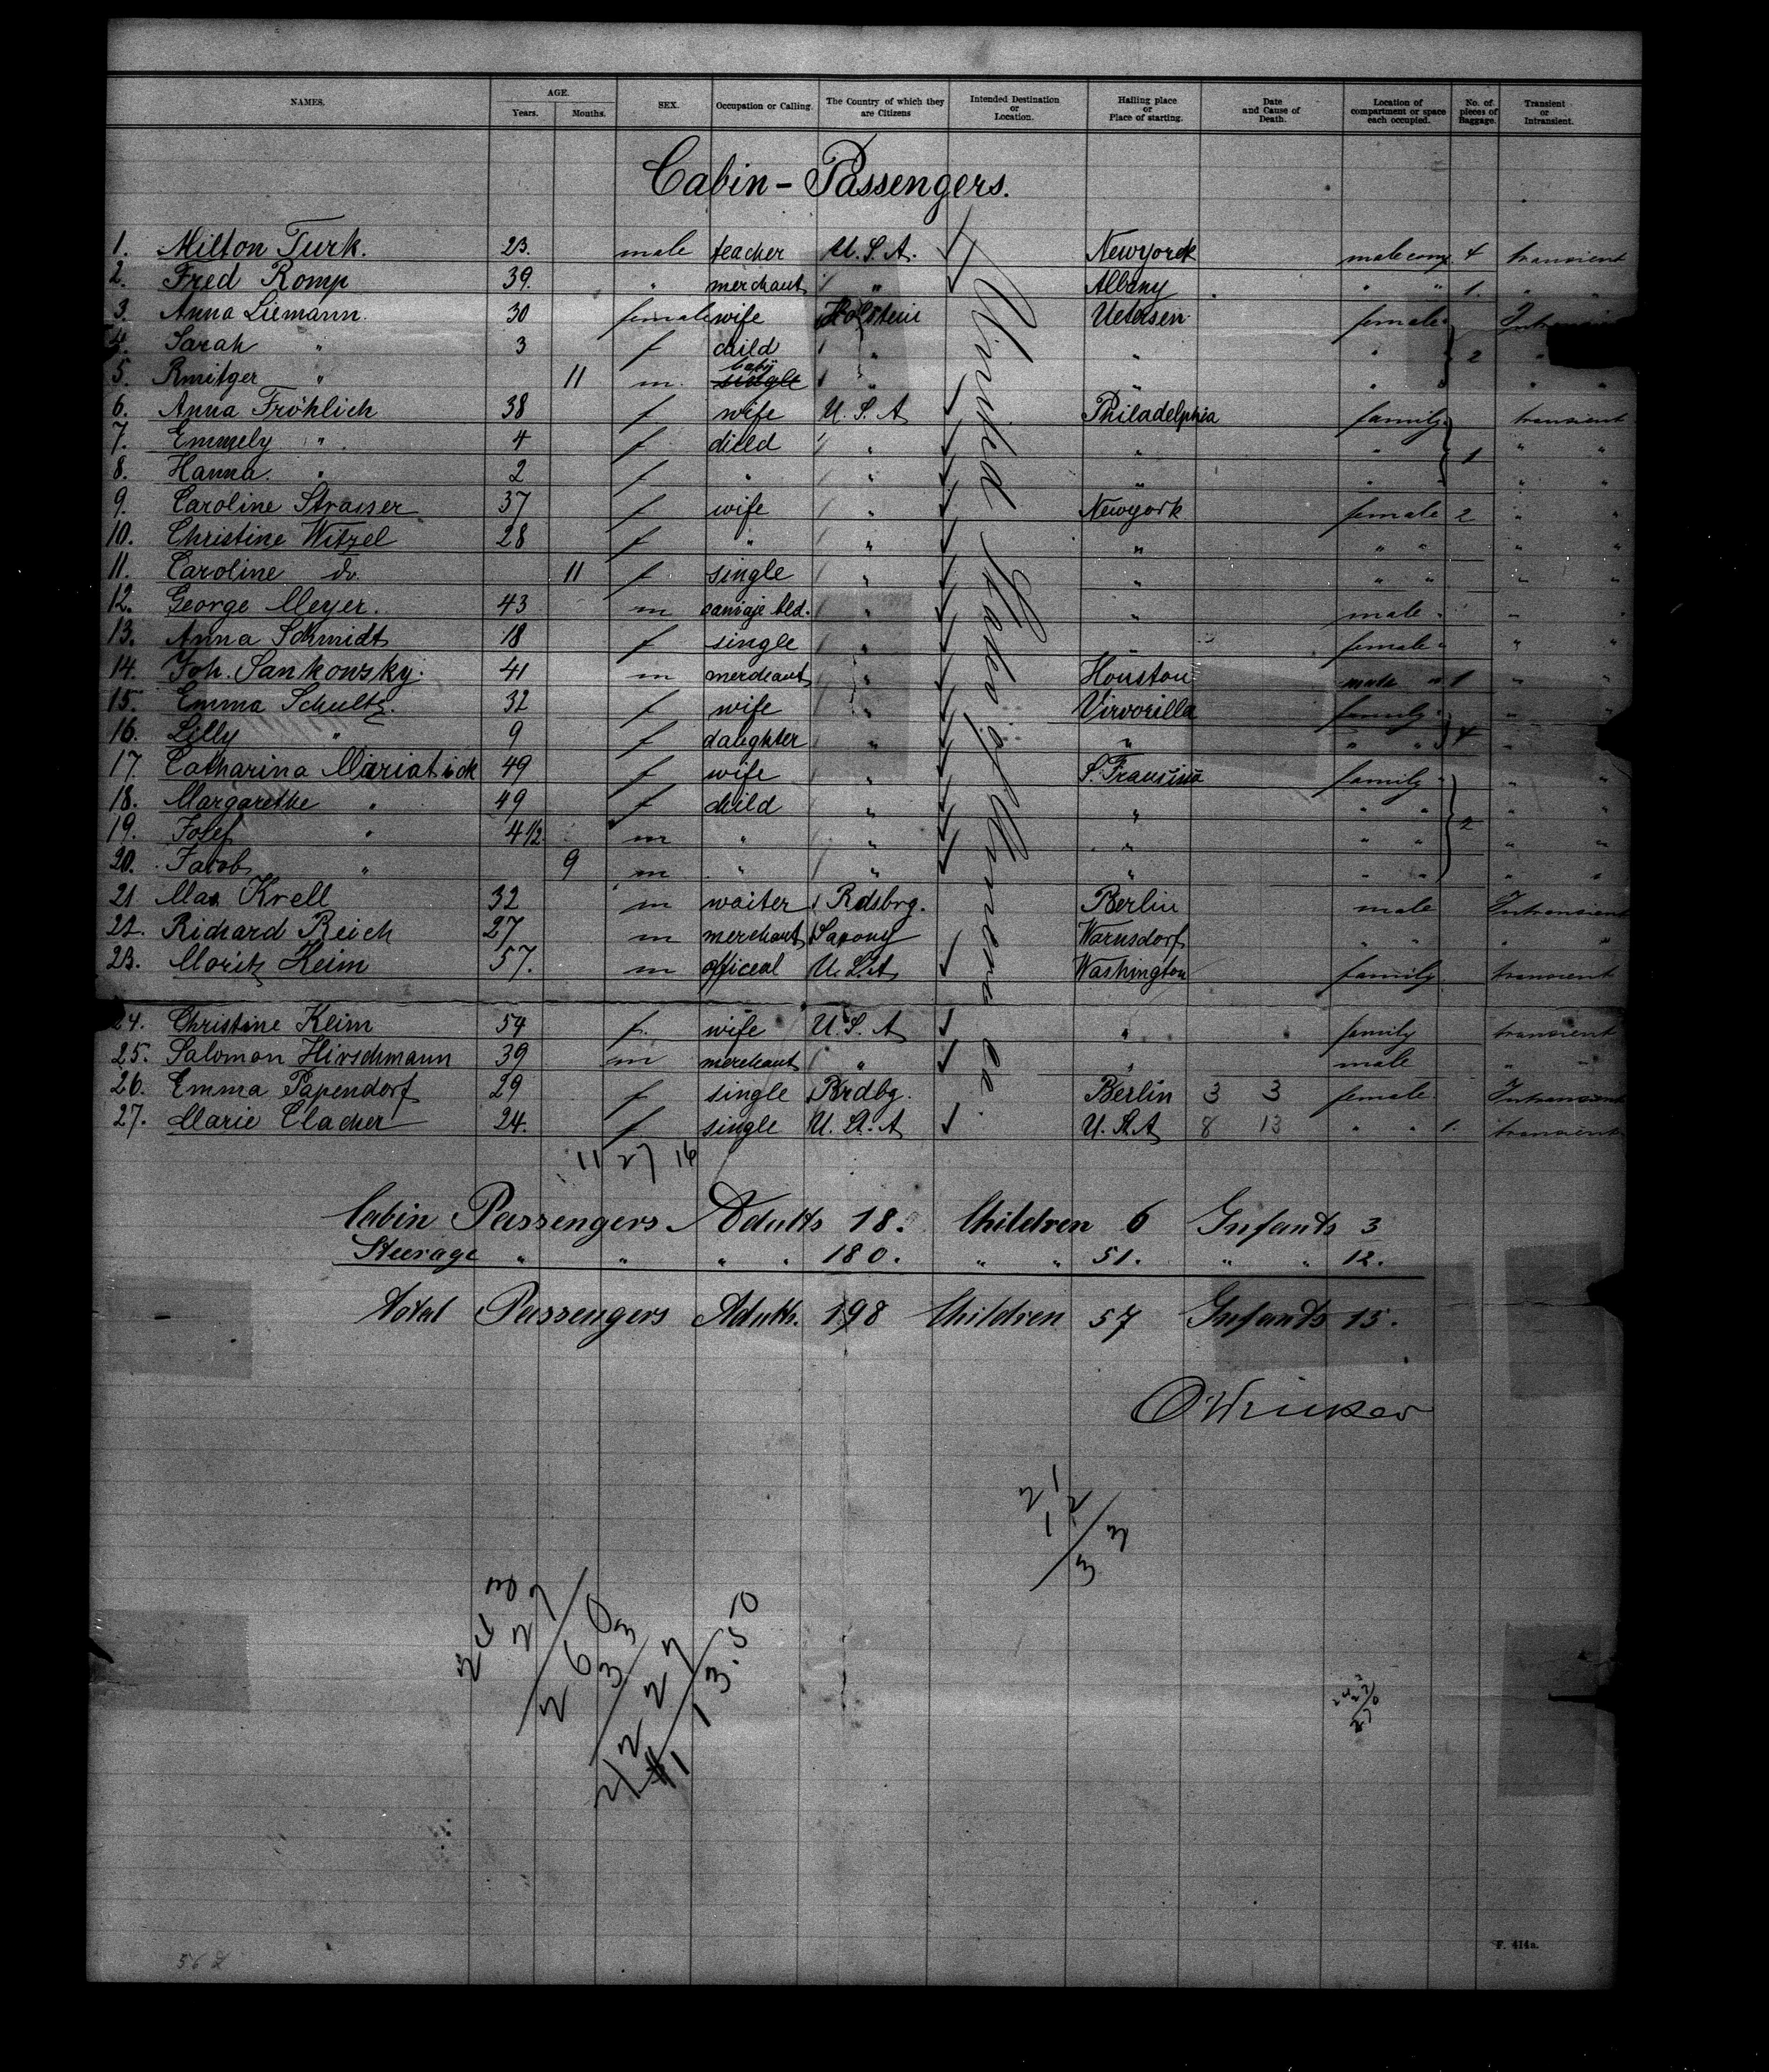 NAMES. AGE. Years. Months. SEX. Occupation or Calling. The Country of which they are Citizens Intended Destination or Location. Hailing place or Place of starting. Date and Cause of Death. Location of compartment or space each occupied. No. of pieces of Baggage. Transient or Intransient.
Cabin - Passengers.
1. Milton Turk. 23. male teacher U. S. A. Newyorck male comp. 4 transient
2. Fred Romp 39. " merchant " Albany " " 1. " "
3. Anna Liemann. 30 female wife Holstein Uetersen female "
4. Sarah " 3 f child " " " 2 "
5. Rmitger " 11 m. baby single " " " " "
6. Anna Fröhlich 38 f wife U. S. A Philadelphia family transient
7. Emmely " 4 f child " " " 1 " "
8. Hanna. " 2 f " " " " " "
9. Caroline Strasser 37 f wife " Newyork female 2 " "
10. Christine Witzel 28 f " " " " " " "
11. Caroline do. 11 f single " " " " " "
12. George Meyer. 43 m " " male " " "
13. Anna Schmidt 18 f single " " female " " "
14. Joh. Sankowsky. 41 m merchant " Houston male " 1 " "
15. Emma Schultz. 32 f wife " family " " "
16. Lilly " 9 f daughter " " " " 4 "
17. Catharina Mariatick 49 f wife " family " " "
18. Margarethe " 49 f child " " " " " "
19. Josef " 4 1/2 m " " " " " 2 " "
20. Jacob " 9 m " " " " " " "
21 Max Krell 32 m waiter Rdsbrg. Berlin male Intransient
22. Richard Reich 27 m merchant Saxony Warnsdorf " " " "
23. Moritz Keim 57. m officeal U. S. A Washington family transient
24. Christine Keim 54 f. wife U. S. A " family transient
25. Salomon Hirschmann 39 m merchant " " male " "
26. Emma Papendorf 29 f single Brdbg. Berlin 3 3 female Intransient
27. Marie Clacher 24. f single U. S. A U. S. A 8 13 " " 1. transient
United States of America
11 27 16
Cabin Passengers Adults 18. Children 6 Infants 3
Steerage " " " " 180. " " 51. " " 12.
Total Passengers Adults. 198 Children 57 Infants 15.
F. 414a.